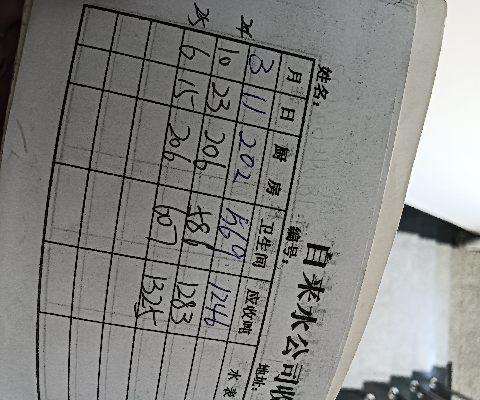 自来水公司收
姓名: 编号: 地址:
月 日 厨房 卫生间 应收吨 水
3 11 202 1246
24 10 23 206 586 1283
25 6 15 206 607 1325